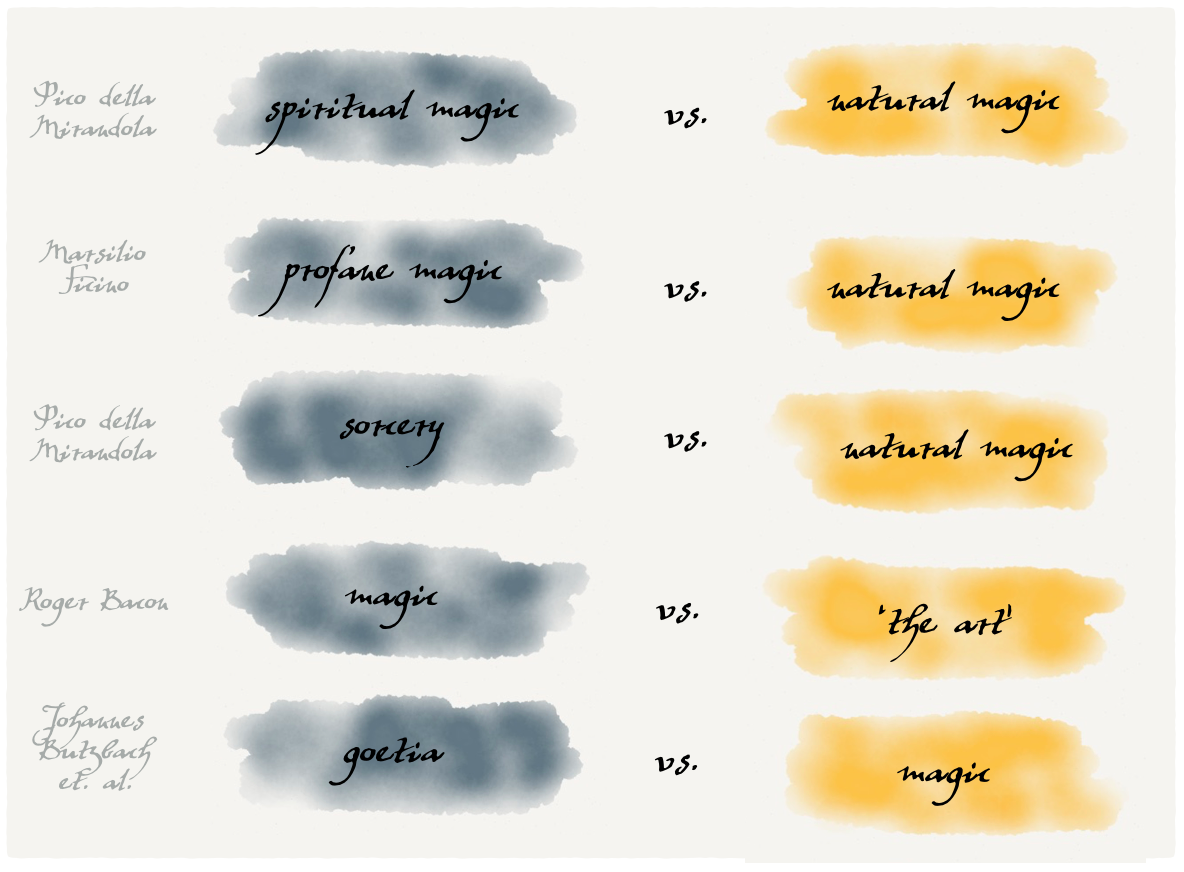 Pico della
Mirandola
spiritual magic
vs.
natural magic
Marsilio
Ficino
profane magic
vs.
natural magic
Pico della
Mirandola
sorcery
vs.
natural magic
Roger Bacon
magic
vs.
'the art'
Johannes
Butzbach
et. al.
goetia
vs.
magic